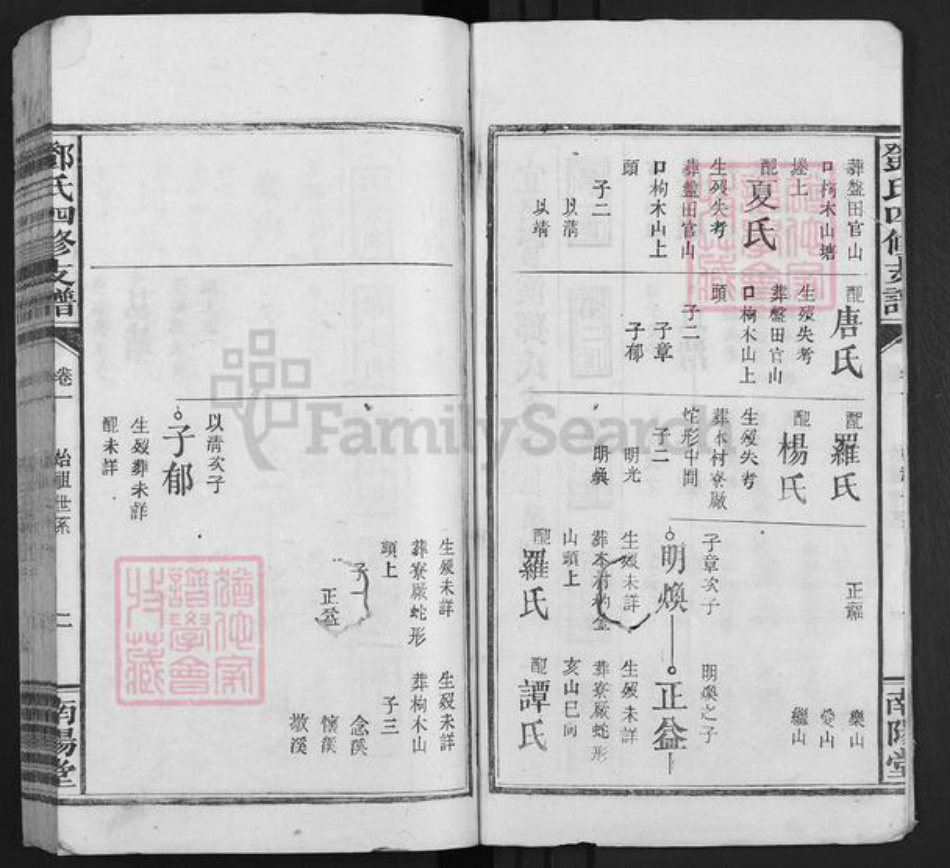 鄧氏四修支譜
南陽堂
葬盤田官山
口栒木山塘
塝上
配夏氏
生歿失考
葬盤田官山
口栒木山上
頭
子二
以清
以靖
配唐氏
生歿失考
葬盤田官山
口栒木山上
頭
子二
子章
子郁
配羅氏
配楊氏
生歿失考
葬本村寮厰
蛇形中間
子二
明光
明煥
正龗
樂山
愛山
繼山
子章次子
明煥
生歿未詳
山頭上
配羅氏
明煥之子
正益
生歿未詳
葬寮厰蛇形
亥山巳向
配譚氏
鄧氏四修支譜
卷一
始祖世系
二
南陽堂
以清次子
子郁
生歿葬未詳
配未詳
生歿未詳
葬寮厰蛇形
頭上
子一
正益
生歿未詳
葬栒木山
子三
念溪
懷溪
墩溪
FamilySearch